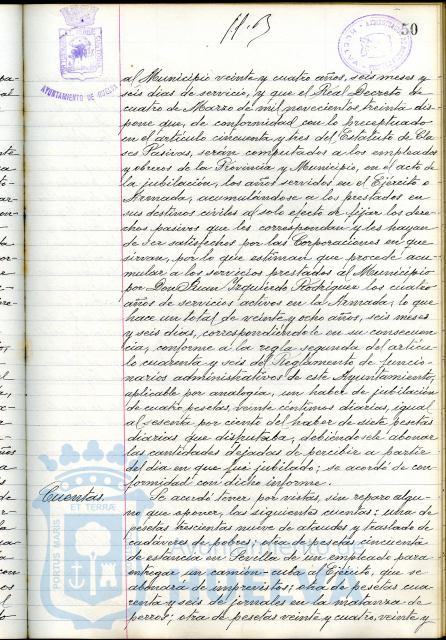 50
AYUNTAMIENTO DE HUELVA
al Municipio veinte y cuatro años, seis meses y
seis dias de servicio, y que el Real Decreto de
cuatro de Marzo de mil novecientos treinta dis-
pone que, de conformidad con lo preceptuado
en el artículo cincuenta y tres del Estatuto de Cla-
ses Pasivas, serán computados a los empleados
y obreros de la Provincia y Municipio, en el acto de
la jubilación, los años servidos en el Ejército o
Armada, acumulándose a los prestados en
sus destinos civiles al solo efecto de fijar los dere-
chos pasivos que les correspondan y les hayan
de ser satisfechos por las Corporaciones en que
sirvan, por lo que estiman que procede acu-
mular a los servicios prestados al Municipio
por Don Juan Izquierdo Rodriguez los cuatro
años de servicios activos en la Armada, lo que
hace un total de veinte y ocho años, seis meses
y seis dias, correspondiendole en su consecuen-
cia, conforme a la regla segunda del artícu-
lo cuarenta y seis del Reglamento de funcio-
narios administrativos de este Ayuntamiento,
aplicable por analogía, un haber de jubilación
de cuatro pesetas, veinte centimos diarias, igual
al sesenta por ciento del haber de siete pesetas
diarias que disfrutaba, debiendosele abonar
las cantidades dejadas de percibir a partir
del dia en que fué jubilado; se acordó de con-
formidad con dicho informe.
Cuentas. Se acordó tener por vistas, sin reparo algu-
no que oponer, las siguientes cuentas: una de
pesetas trescientas nueve de ataudes y traslado de
cadáveres de pobres; otra de pesetas cincuenta
de estancia en Sevilla de un empleado para
entregar un camión-cuba al Ejército, que se
abonará de imprevistos; otra de pesetas cua-
renta y seis de jornales en la matanza de
perros; otra de pesetas veinte y cuatro, veinte y
PORTUS MARIS ET TERRAE
Ayuntamiento de
HUELVA